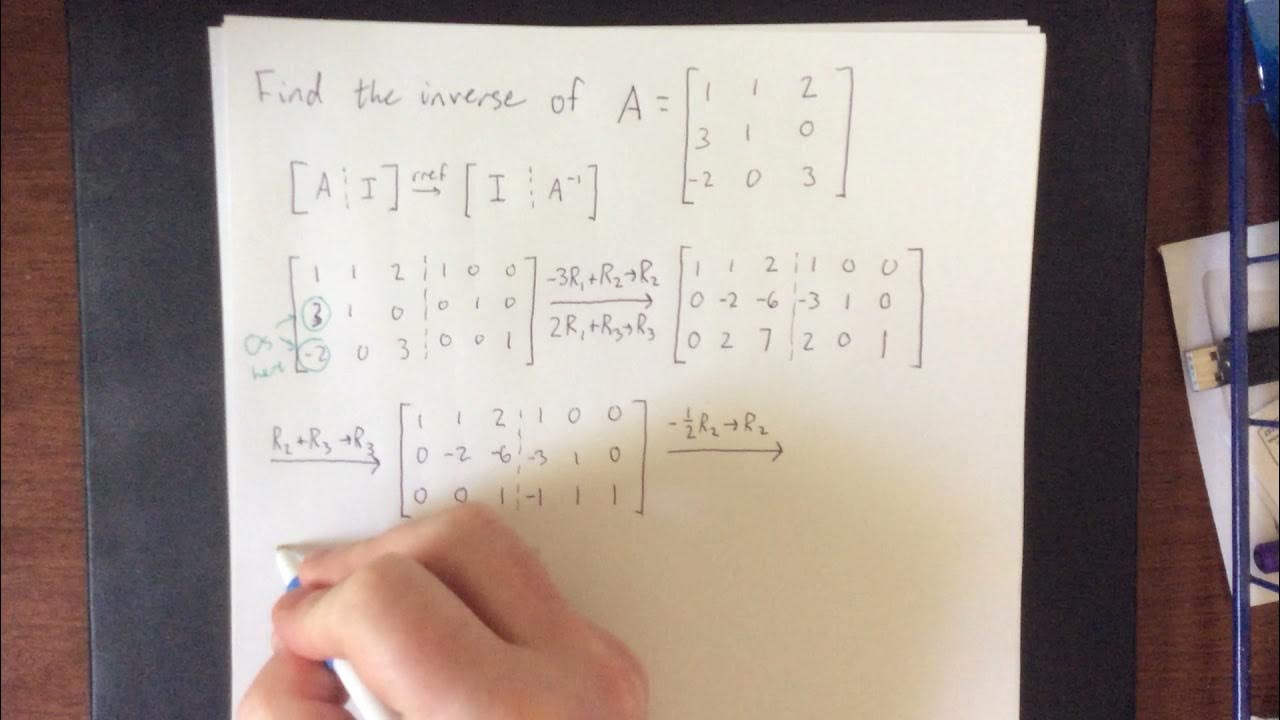 Find the inverse of A = [1 1 2
3 1 0
-2 0 3]
[A ¦ I] rref→ [I ¦ A⁻¹]
[1 1 2 ¦ 1 0 0
3 1 0 ¦ 0 1 0
-2 0 3 ¦ 0 0 1]
0s
here
-3R₁+R₂→R₂
2R₁+R₃→R₃
[1 1 2 ¦ 1 0 0
0 -2 -6 ¦ -3 1 0
0 2 7 ¦ 2 0 1]
R₂+R₃→R₃
[1 1 2 ¦ 1 0 0
0 -2 -6 ¦ -3 1 0
0 0 1 ¦ -1 1 1]
-½R₂→R₂